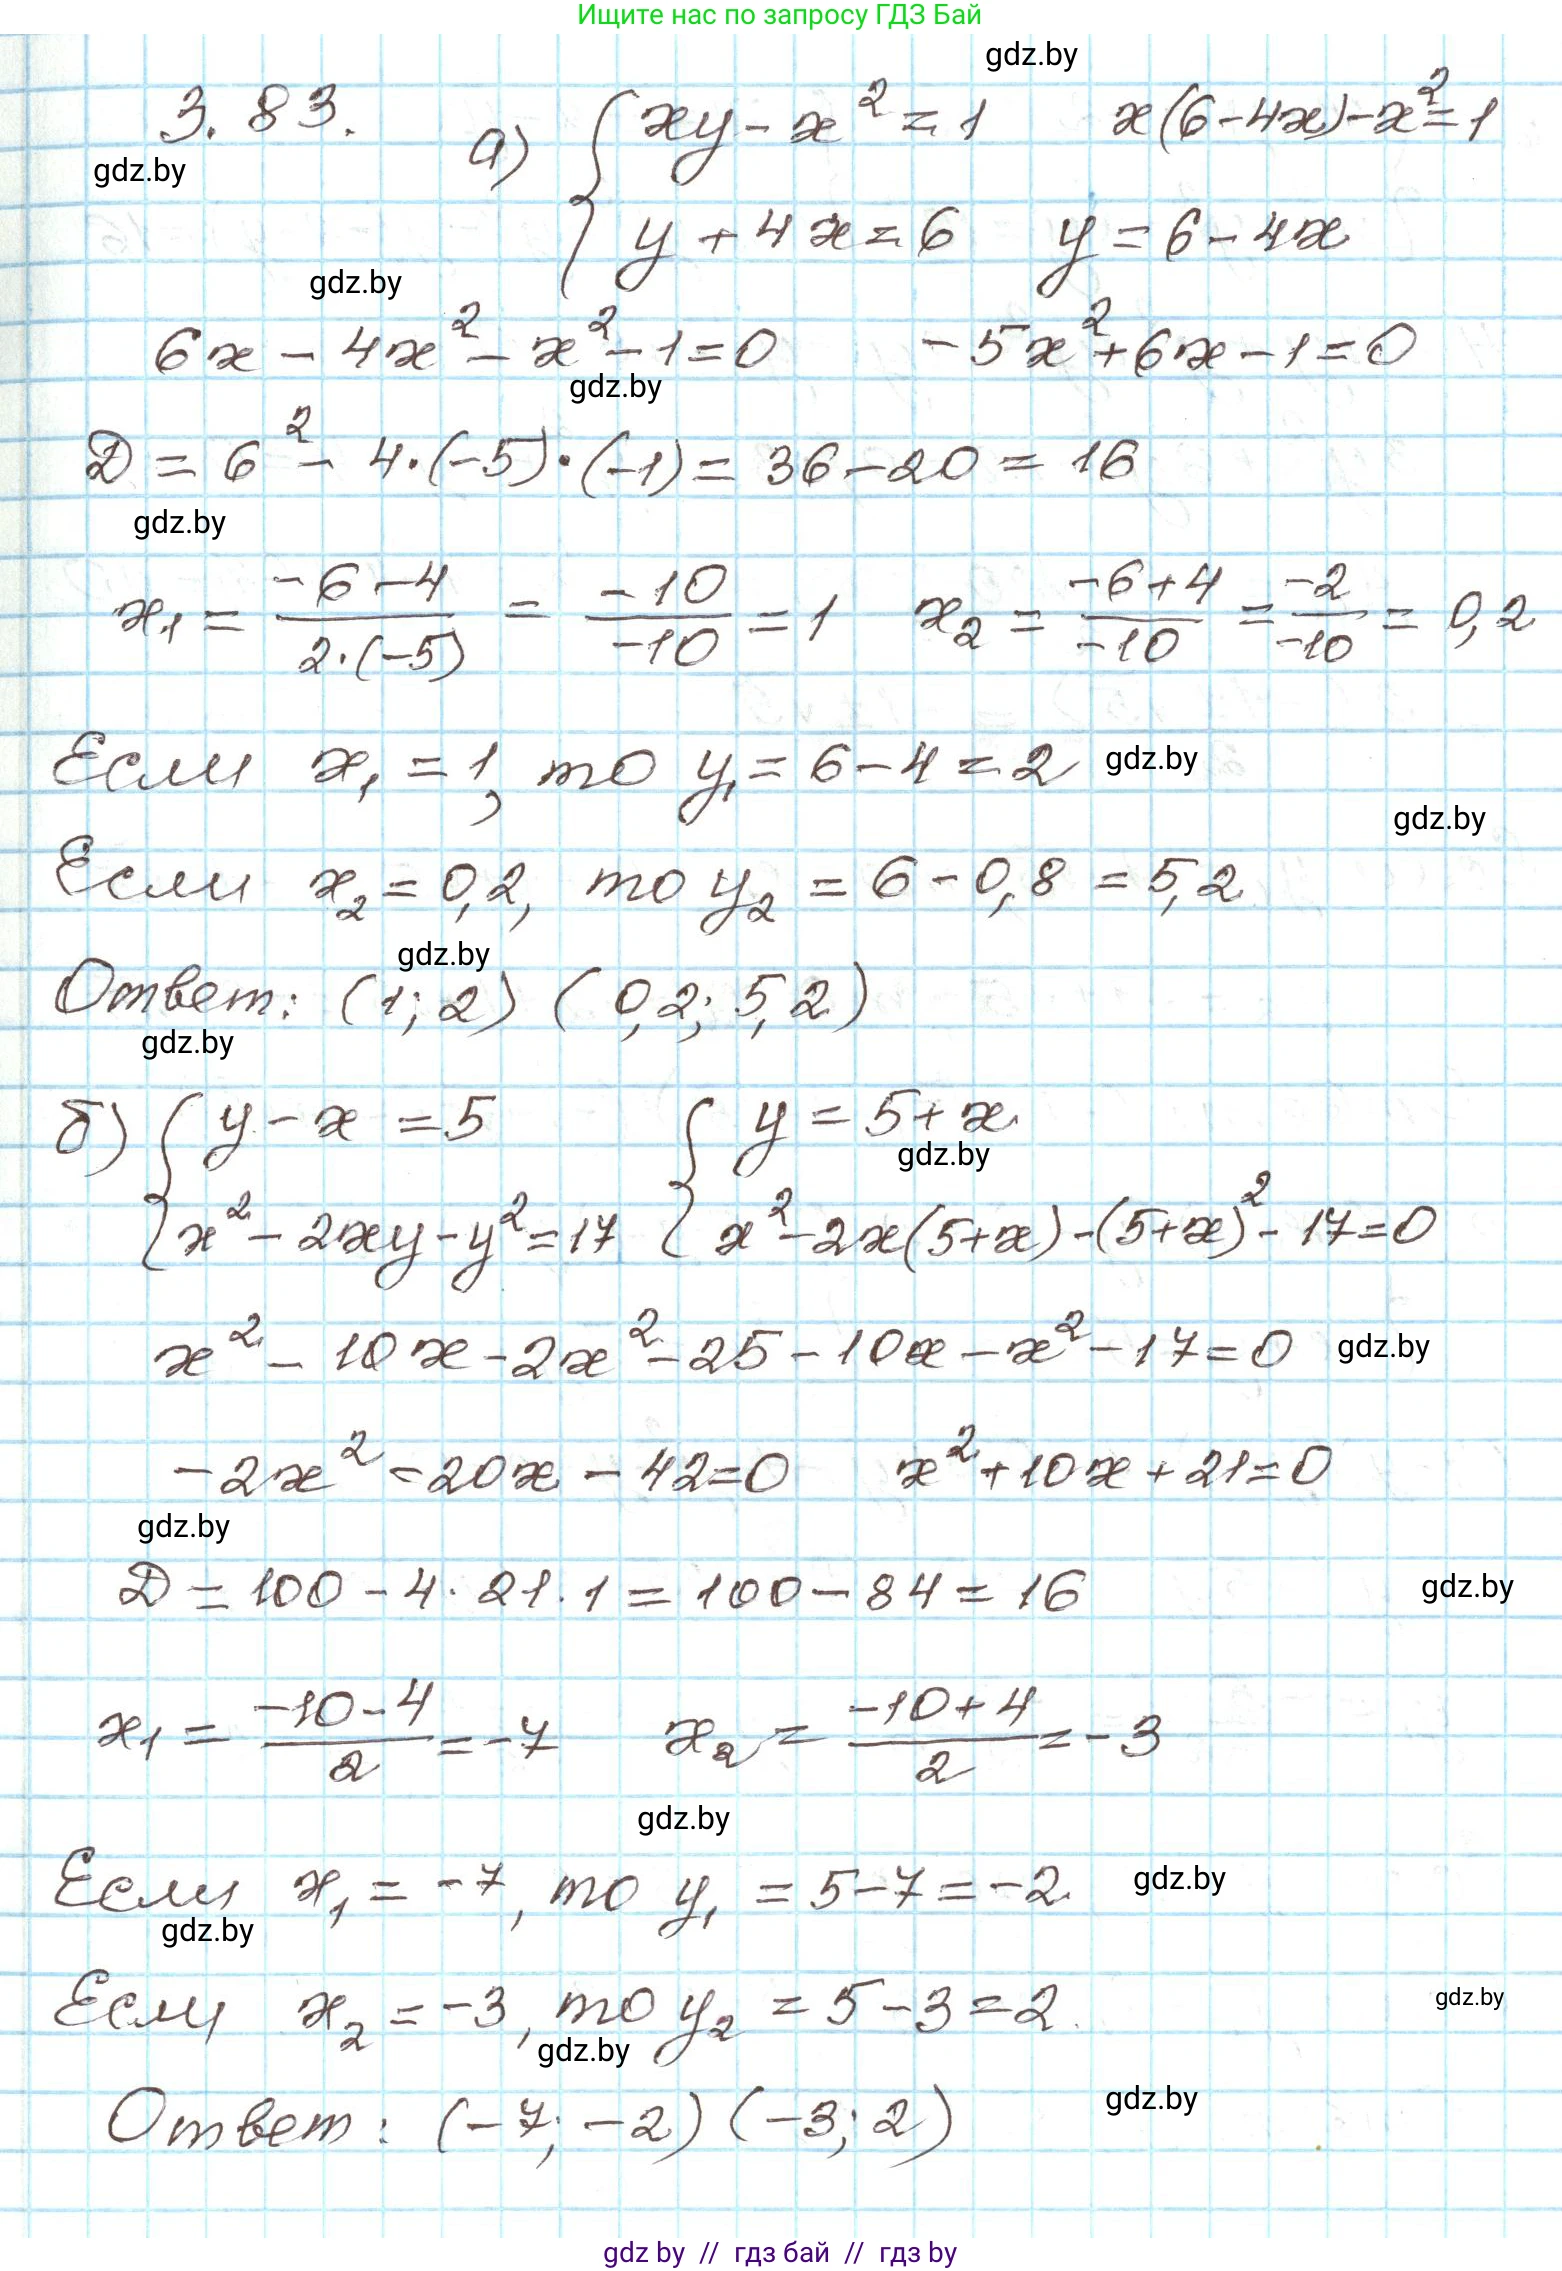 Ищите нас по запросу ГДЗ Бай
gdz.by
3.83. а) { xy - x² = 1   x(6-4x)-x²=1
gdz.by
y + 4x = 6   y = 6 - 4x
gdz.by
6x - 4x² - x² - 1 = 0   -5x² + 6x - 1 = 0
gdz.by
D = 6² - 4·(-5)·(-1) = 36 - 20 = 16
gdz.by
x₁ = (-6-4)/(2·(-5)) = (-10)/(-10) = 1   x₂ = (-6+4)/(-10) = (-2)/(-10) = 0,2
Если x₁ = 1, то y₁ = 6 - 4 = 2 gdz.by
gdz.by
Если x₂ = 0,2, то y₂ = 6 - 0,8 = 5,2
gdz.by
Ответ: (1; 2) (0,2; 5,2)
gdz.by
б) { y - x = 5   { y = 5 + x
gdz.by
x² - 2xy - y² = 17   x² - 2x(5+x) - (5+x)² - 17 = 0
x² - 10x - 2x² - 25 - 10x - x² - 17 = 0 gdz.by
-2x² - 20x - 42 = 0   x² + 10x + 21 = 0
gdz.by
D = 100 - 4·21·1 = 100 - 84 = 16 gdz.by
x₁ = (-10-4)/2 = -7   x₂ = (-10+4)/2 = -3
gdz.by
Если x₁ = -7, то y₁ = 5 - 7 = -2 gdz.by
gdz.by
Если x₂ = -3, то y₂ = 5 - 3 = 2. gdz.by
gdz.by
Ответ: (-7; -2) (-3; 2) gdz.by
gdz by // гдз бай // гдз by